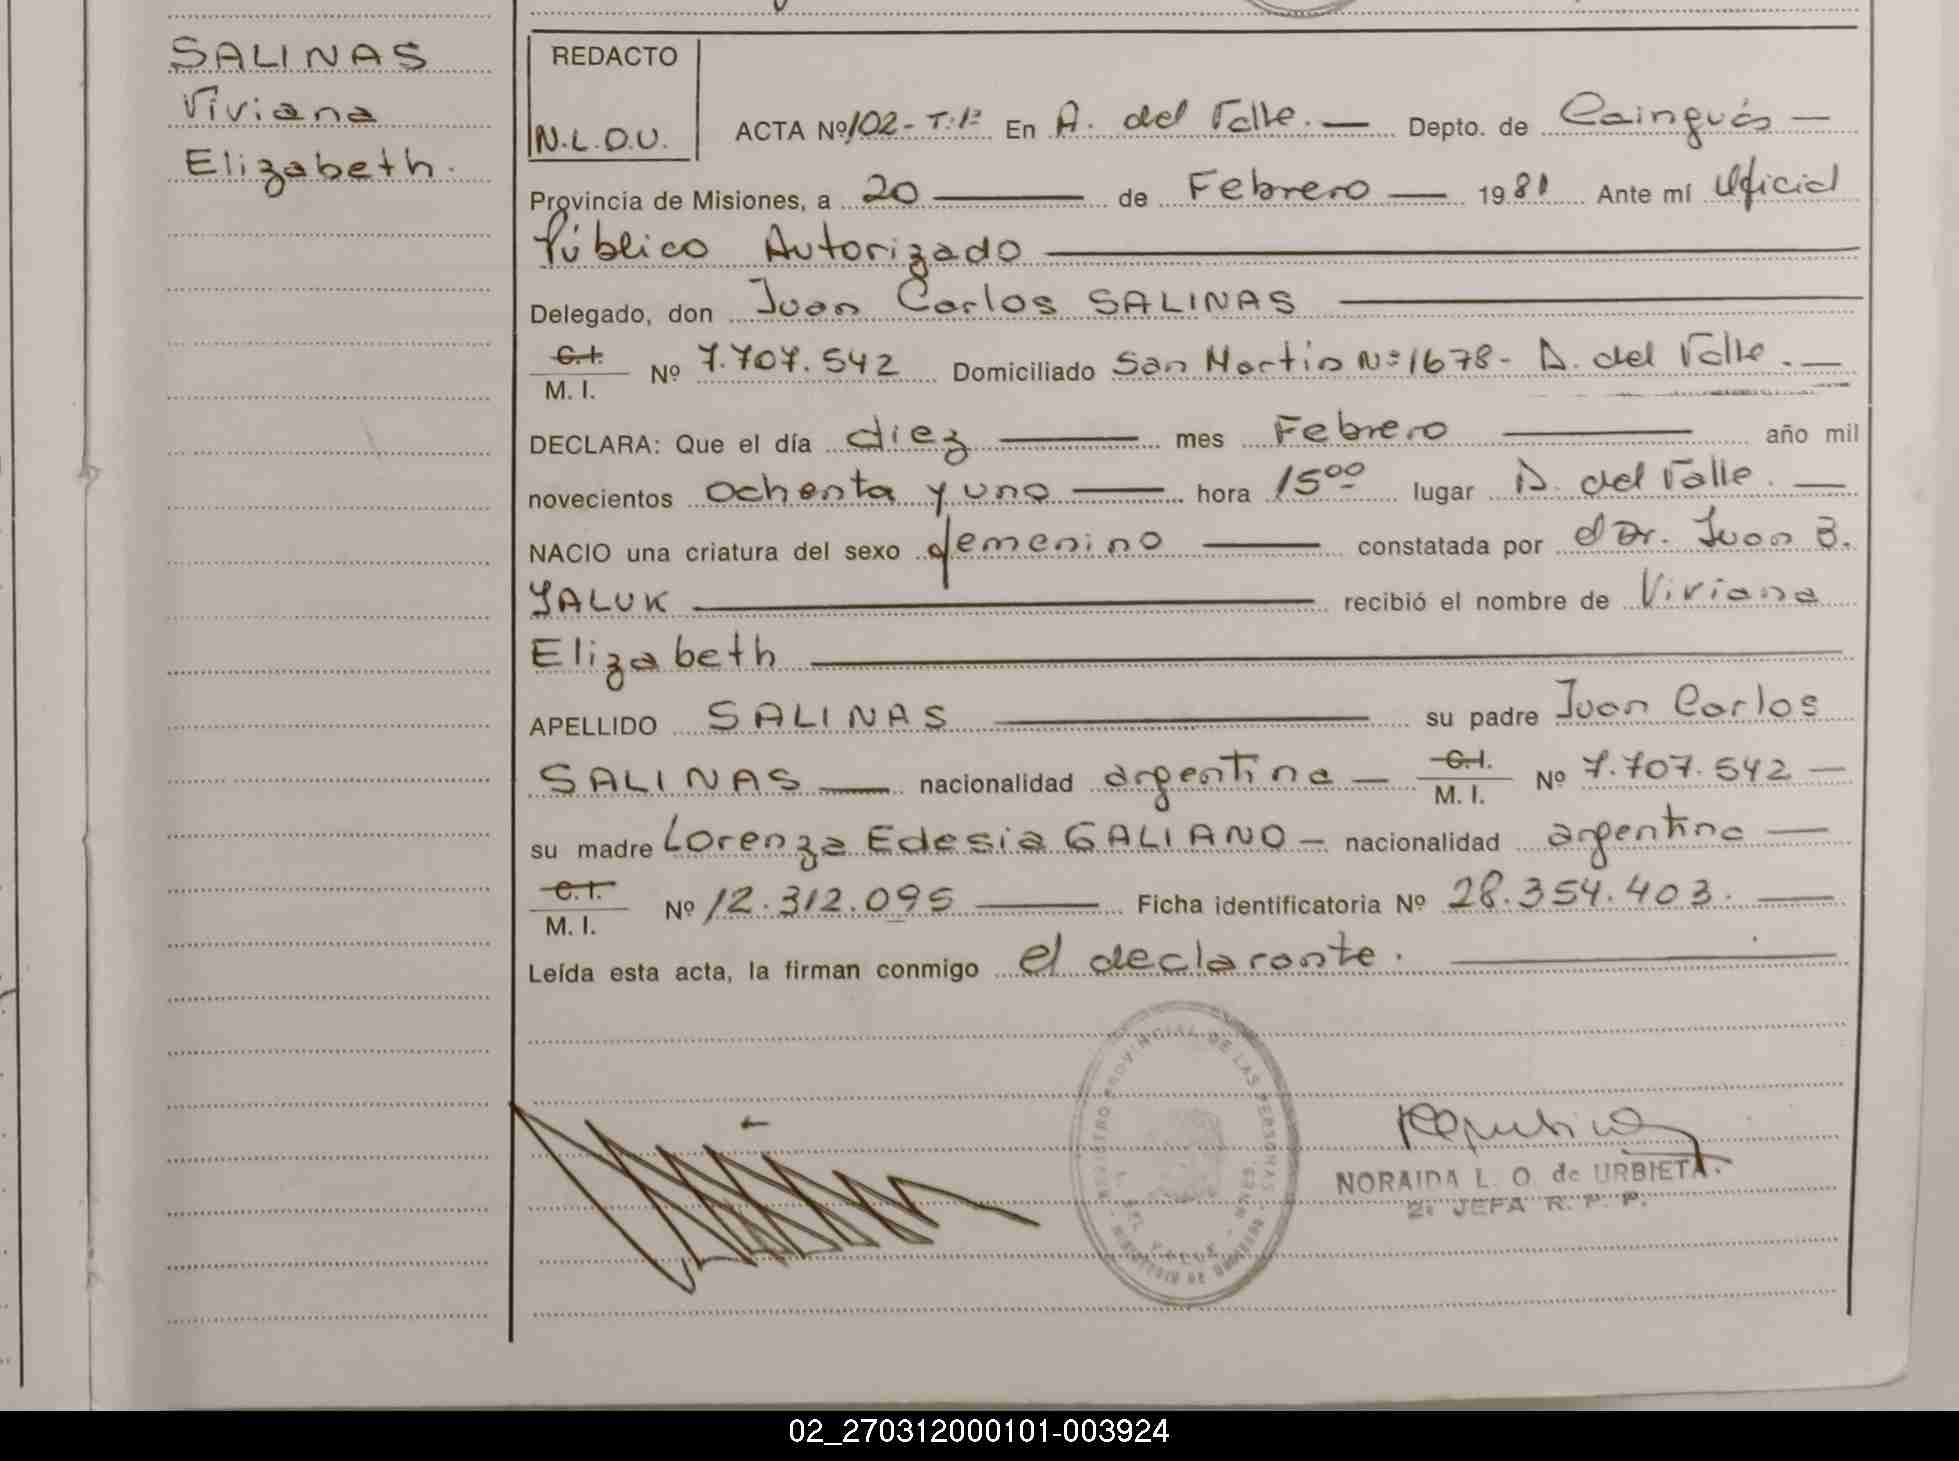 SALINAS
Viviana
Elizabeth.
REDACTO
N.L.O.U.
ACTA Nº 102- T:1º En A. del Valle. — Depto. de Cainguás —
Provincia de Misiones, a 20 — de Febrero — 1981 Ante mí Oficial
Público Autorizado
Delegado, don Juan Carlos SALINAS
C.I.
M. I. Nº 7.707.542 Domiciliado San Martin Nº 1678- A. del Valle. —
DECLARA: Que el día diez — mes Febrero — año mil
novecientos ochenta y uno — hora 15ºº lugar A. del Valle. —
NACIO una criatura del sexo femenino — constatada por el Dr. Juan B.
YALUK — recibió el nombre de Viviana
Elizabeth —
APELLIDO SALINAS — su padre Juan Carlos
SALINAS — nacionalidad argentina — C.I.
M. I. Nº 7.707.542 —
su madre Lorenza Edesia GALIANO — nacionalidad argentina —
C.I.
M. I. Nº 12.312.095 — Ficha identificatoria Nº 28.354.403. —
Leída esta acta, la firman conmigo el declarante. —
REGISTRO PROVINCIAL DE LAS PERSONAS
MINISTERIO DE GOBIERNO
A. DEL VALLE - MNES.
NORAIDA L. O. de URBIETA
2ª JEFA R. P. P.
02_270312000101-003924